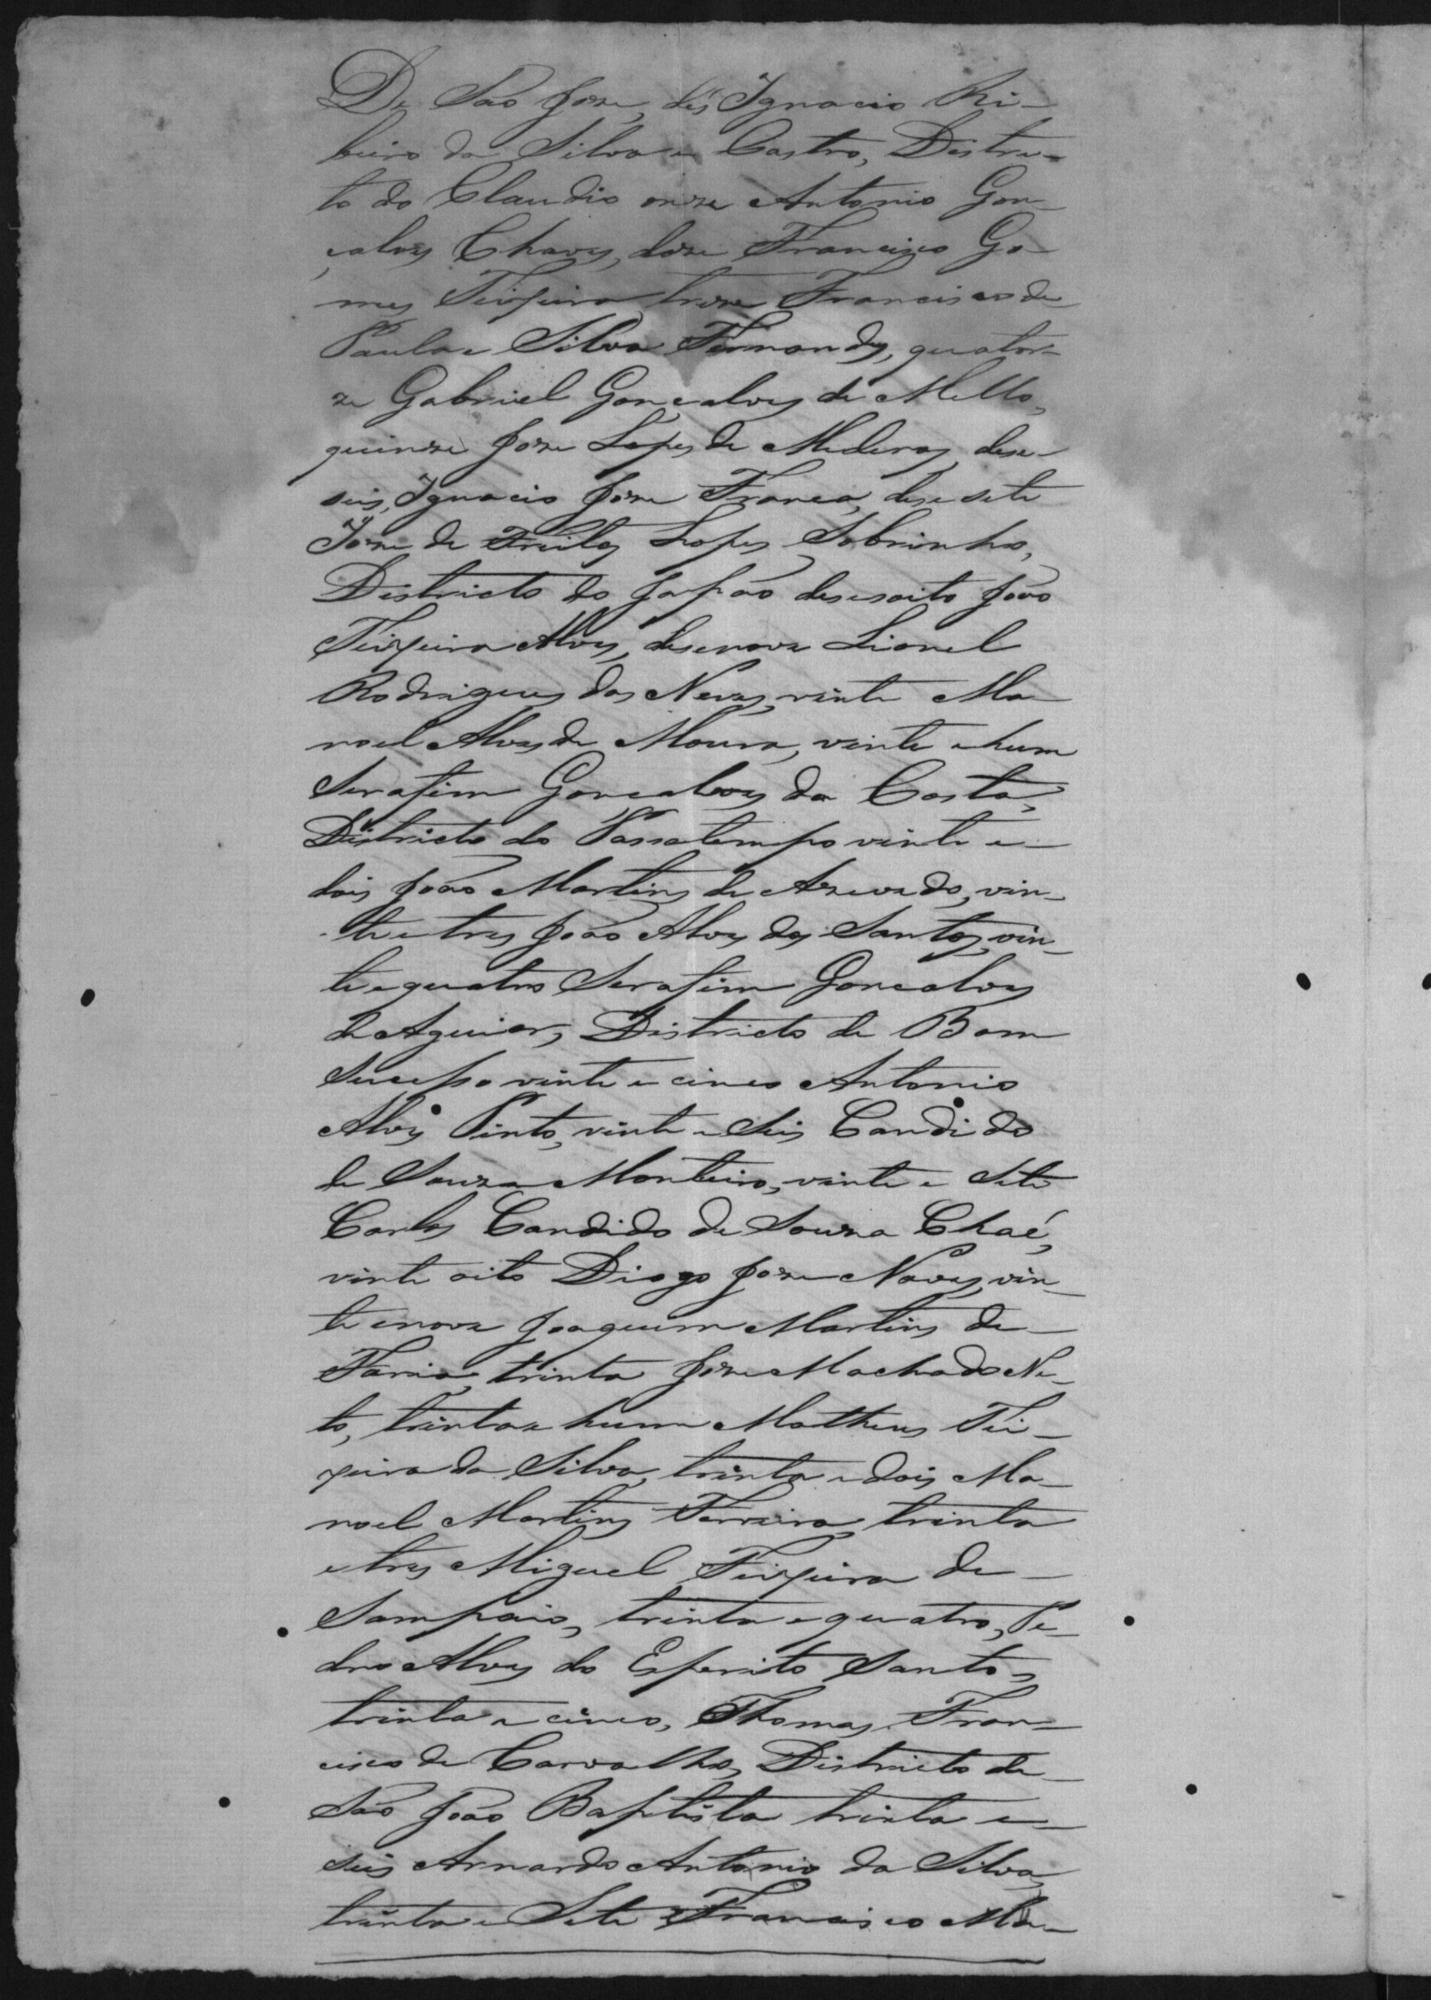 De São Jose, dés Ignacio Ri-
beiro da Silva e Castro, Distric-
to do Claudio onze Antonio Gon-
çalves Chaves, doze Francisco Go-
mes Teixeira treze Francisco de
Paula e Silva Fernandes, quator-
ze Gabriel Gonçalves de Mello,
quinze Jose Lopes de Mederos, dese-
seis, Ignacio Jose Franco, dese sete
Jose de Freitas Lopes Sobrinho,
Districto do Japão desesoito João
Teixeira Alves, desenove Lionel
Rodrigues das Neves, vinte Ma-
noel Alves de Moura, vinte e hum
Serafim Goncalves da Costa,
Districto do Passatempo vinte e-
dois João Martins de Azevedo, vin-
te e tres João Alves dos Santos, vin-
te e quatro Serafim Goncalves
de Aguiar, Districto de Bom
Sucesso vinte e cinco Antonio
Alves Pinto, vinte e Seis Candido
de Souza Monteiro, vinte e Sete
Carlos Candido de Souza Chaé,
vinte oito Diogo Jose Naves, vin-
te enove Joaquim Martins de-
Faria, trinta Jose Machado Ne-
to, trinta e hum Matheus Tei-
xeira da Silva, trinta e dois Ma-
noel Martins Ferreira, trinta
e tres Miguel Teixeira de-
Sampaio, trinta e quatro, Pe-
dro Alves do Esperito Santo,
trinta e cinco, Thomas Fran-
cisco de Carvalho, Districto de-
São João Baptista trinta e-
seis Arnardo Antonio da Silva,
trinta e Sete Francisco Ma-